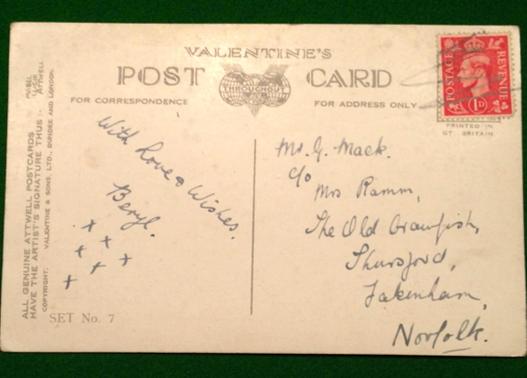 VALENTINE'S
POST CARD
THROUGHOUT
FOR CORRESPONDENCE
FOR ADDRESS ONLY
POSTAGE REVENUE
1D
PRINTED IN
GT. BRITAIN
ALL GENUINE ATTWELL POSTCARDS
HAVE THE ARTIST'S SIGNATURE THUS
ATTWELL
COPYRIGHT. VALENTINE & SONS, LTD., DUNDEE AND LONDON.
With Love & Wishes.
Beryl.
x x x
x x
x
SET No. 7
G. Mack.
c/o
Mrs Ramm,
The Old
Thursford,
Fakenham,
Norfolk.